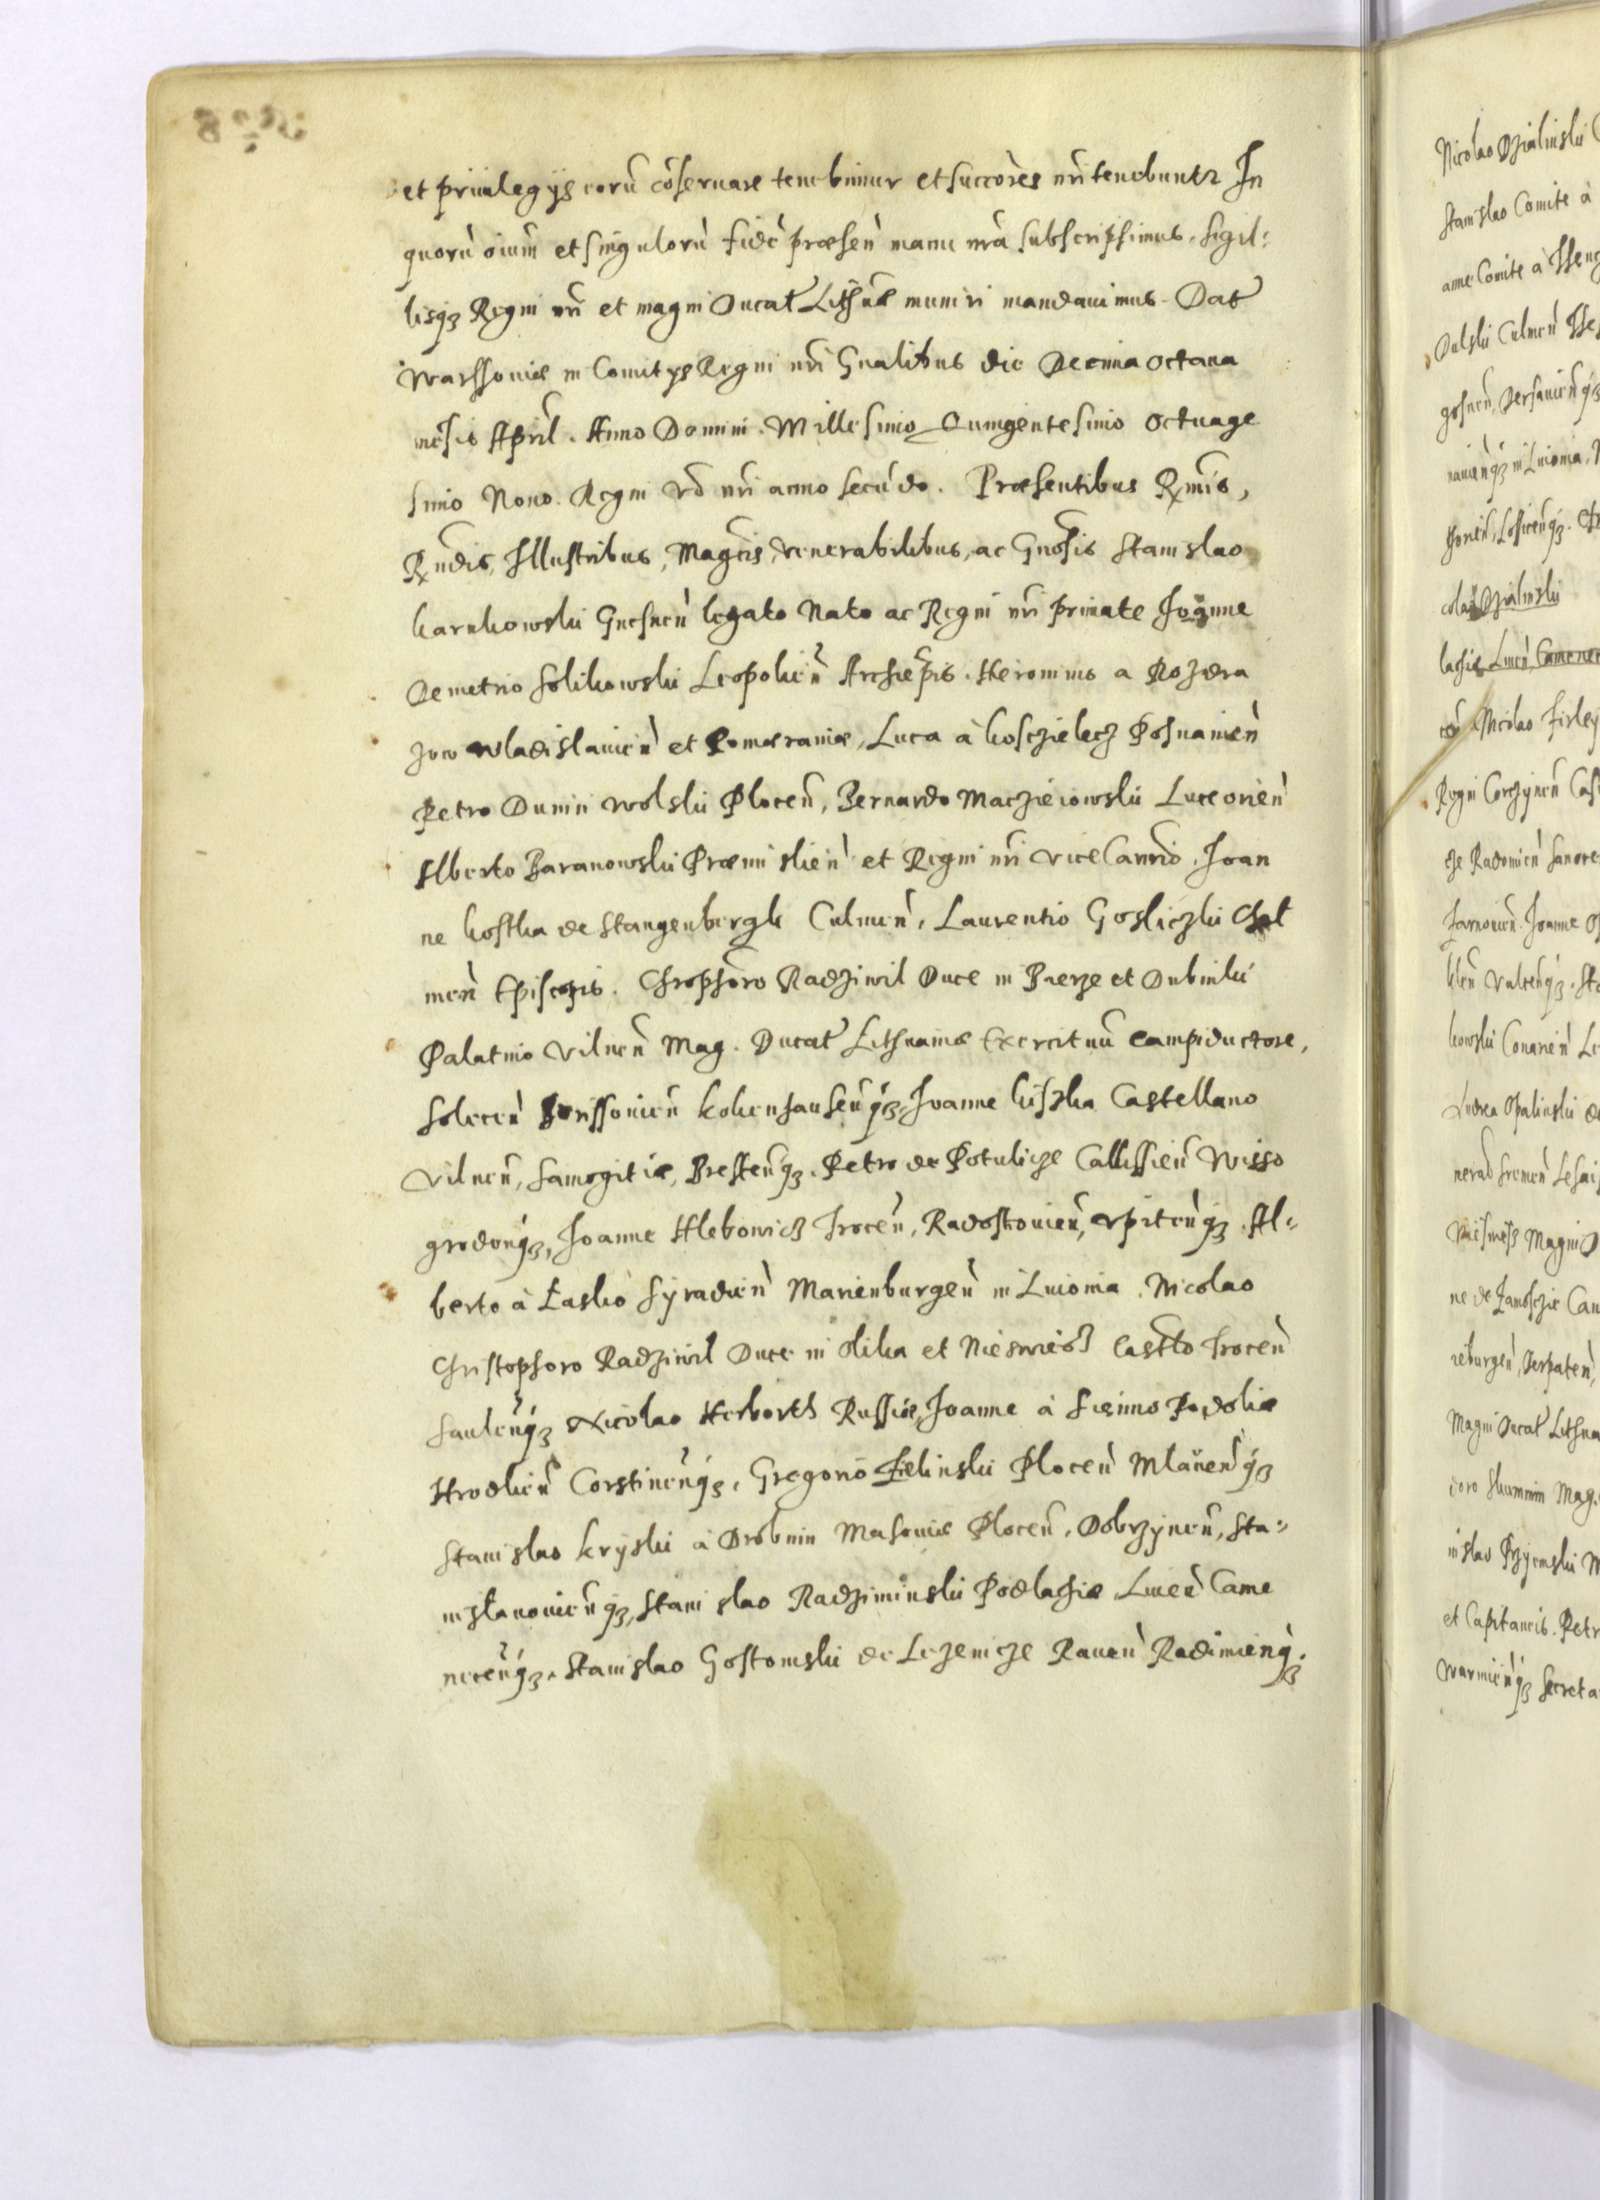 et priuilegijs eorũ cõseruare tenebimur et succores nrĩ tenebuntr In
quorũ oĩum et singulorũ fidẽ præsen̄ manu nrã subscripsimus, sigil=
lisqȝ Regni nrĩ et magni Ducat Lithuæ muniri mandauimus. Dat
Warssouiæ in Comitijs Regni nrĩ Gnalibus die Decima octaua
mẽsis Aprīl. Anno Domini. Millesimo Quingentesimo octuage
simo Nono. Regni vō nrĩ anno secũdo. Præsentibus Rxmis,
Rxndis, Illustribus, Magcis, Venerabilibus, ac Gnosis Stanislao
Karnkowski Gnesnen̄ legato Nato ac Regni nrĩ primate Joanne
Demetrio Solikowski Leopolien̄ Archiepis. Hieronimo a Rozdra
zow Wladislauien̄ et Pomeraniæ, Luca à Kosczielecz Posnanien̄
Petro Dunin Wolski Plocen̄, Bernardo Macziejowski Luceorien̄
Alberto Baranowski Præmislien̄ et Regni nrĩ Vice Canrio. Joan
ne Kostka de Stangenbergk Culmen̄, Laurentio Gosliczki Chel
men̄ Episcopis. Chrophoro Radziwil Duce in Bierze et Dubinki
Palatino Vilnen̄ Mag. Ducat Lithuaniæ Exercituũ campiductore,
Solecen̄ Borissouien̄ Kokenhausen̄qȝ, Joanne Kiszka Castellano
Vilnen̄, Samogitiæ, Bresten̄qȝ. Petro de Potulicze Calissien̄ Wisso
grodenqȝ, Joanne Hlebowicz Trocen̄, Radoskouien̄, Vpiten̄qȝ. Al=
berto à Łasko Syradien̄ Marienburgen̄ in Liuonia. Nicolao
Christophoro Radziwil Duce in Olika et Nieswież Castto Trocen̄
Saulen̄qȝ Nicolao Herborth Russiæ, Joanne à Sienno Podoliæ
Hrodlien̄ Corstinen̄qȝ, Gregorio Zielinski Plocen̄ Mlauen̄qȝ
Stanislao Kryski à Drobnin Masouiæ Plocen̄, Dobrzynen̄, Sta=
nislauouien̄qȝ, Stanislao Radziminski Podlachiæ Liuen̄ Came
necen̄qȝ. Stanislao Gostomski de Lezenicze Rauen̄ Radimienqȝ.
Nicolao Dzialinski
Stanislao Comite à
Dulski Culmen̄
in Liuonia,
Nicolao Firley
Regni
ze Radomien̄
Joanne
kowski Conarien̄
Opalinski
Magni
ne de Zamosczie Can
Magni Ducat Lithua
Mag.
nislao Przyiemski
et Capitaneis. Petr
Warmien̄qȝ Secreta